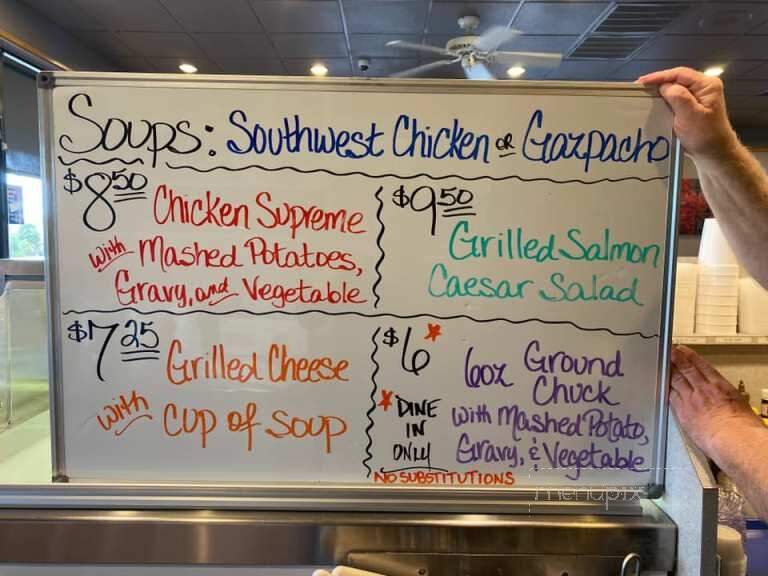 Soups: Southwest Chicken or Gazpacho
$8.50 Chicken Supreme
with Mashed Potatoes,
Gravy, and Vegetable
$9.50
Grilled Salmon
Caesar Salad
$7.25 Grilled Cheese
with cup of soup
$6*
6oz Ground
Chuck
with Mashed Potato,
Gravy, & Vegetable
* DINE
IN
ONLY
NO SUBSTITUTIONS
menupix